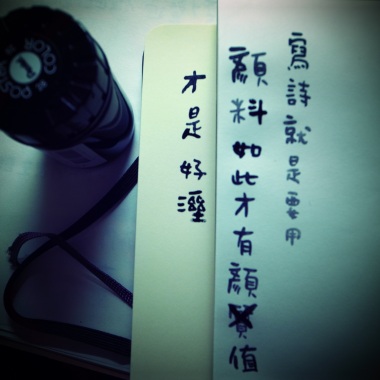 寫詩就是要用
顏料如此才有顏值
才是好溼
POSTER COLOR